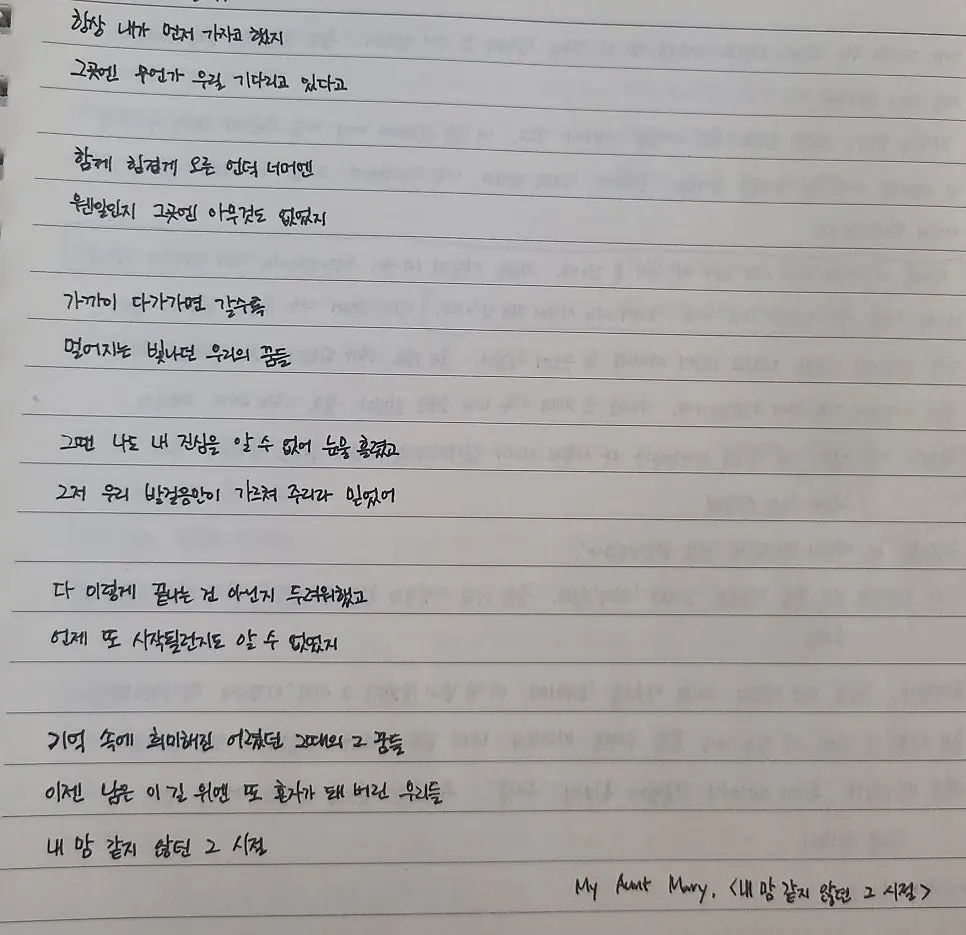 항상 내가 먼저 가자고 했지
그곳엔 무언가 우릴 기다리고 있다고
함께 힘겹게 오른 언덕 너머엔
웬일인지 그곳엔 아무것도 없었지
가까이 다가가면 갈수록
멀어지는 빛나던 우리의 꿈들
그땐 나도 내 진심을 알 수 없어 눈물 흘렸고
그저 우리 발걸음만이 가르쳐 주리라 믿었어
다 이렇게 끝나는 건 아닌지 두려워했고
언제 또 시작될런지도 알 수 없었지
기억 속에 희미해진 어렸던 그때의 그 꿈들
이젠 남은 이 길 위엔 또 혼자가 돼 버린 우리들
내 맘 같지 않던 그 시절
My Aunt Mary, <내 맘 같지 않던 그 시절>